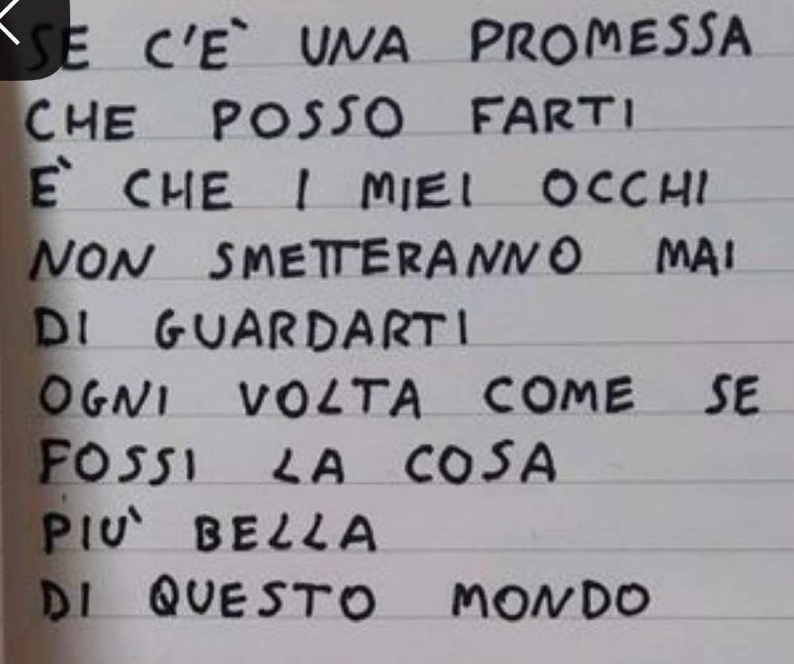 SE C'E` UNA PROMESSA
CHE POSSO FARTI
E` CHE I MIEI OCCHI
NON SMETTERANNO MAI
DI GUARDARTI
OGNI VOLTA COME SE
FOSSI LA COSA
PIU` BELLA
DI QUESTO MONDO